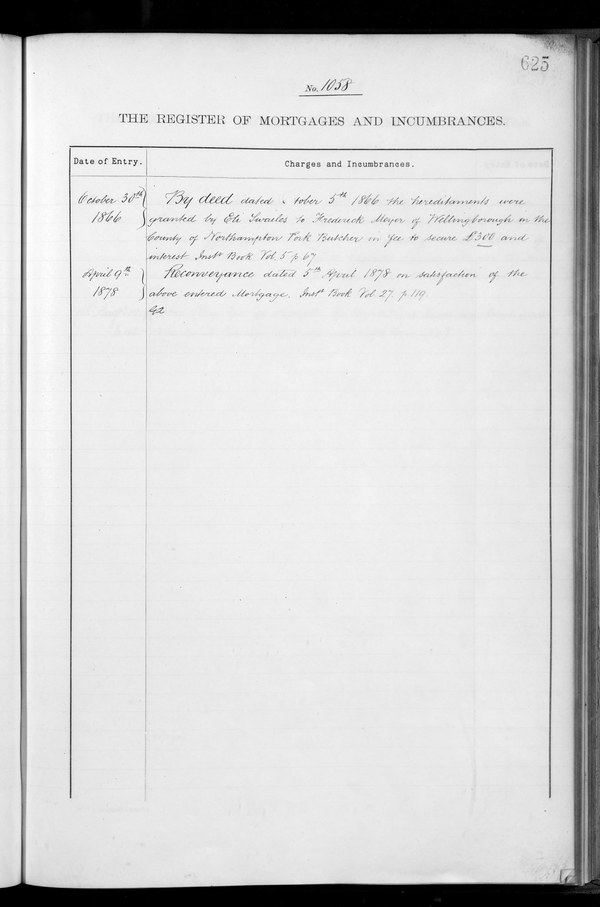 625
No. 1058
THE REGISTER OF MORTGAGES AND INCUMBRANCES.
Date of Entry. Charges and Incumbrances.
October 30th 1866 By deed dated tober 5th 1866 the hereditaments were
granted by Eli Swailes to Frederick Meyer of Wellingborough in the
County of Northampton Pork Butcher in fee to secure £300 and
interest Inst. Book Vol. 5 p 67
April 9th 1878 Reconveyance dated 5th April 1878 on satisfaction of the
above entered Mortgage. Inst. Book Vol 27. p. 119